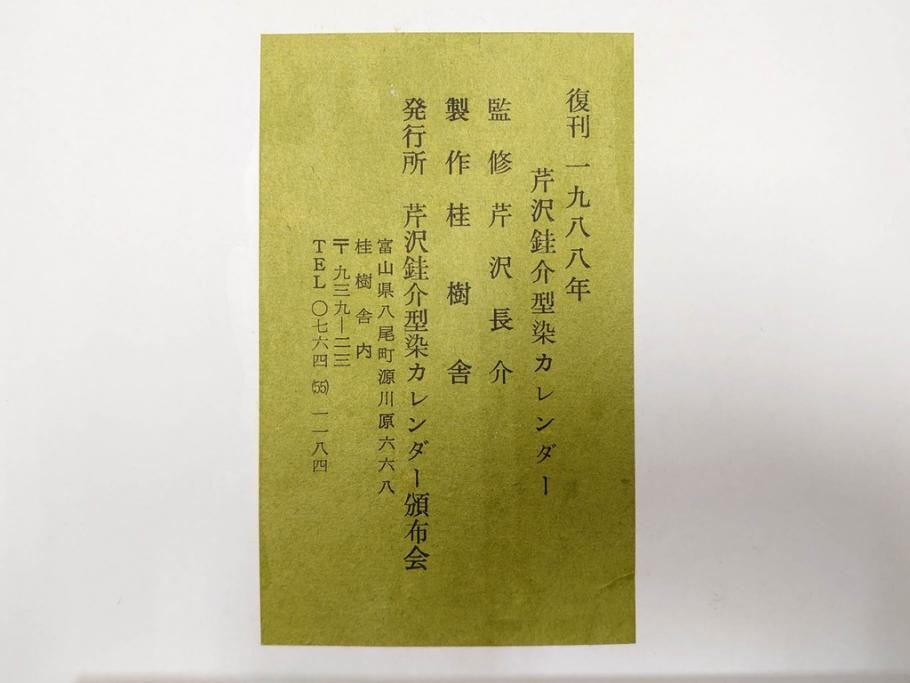 復刊 一九八八年
芹沢銈介型染カレンダー
監修 芹沢長介
製作 桂樹舎
発行所 芹沢銈介型染カレンダー頒布会
富山県八尾町源川原六六八
桂樹舎内
〒九三九―二三
TEL〇七六四(55)一一八四